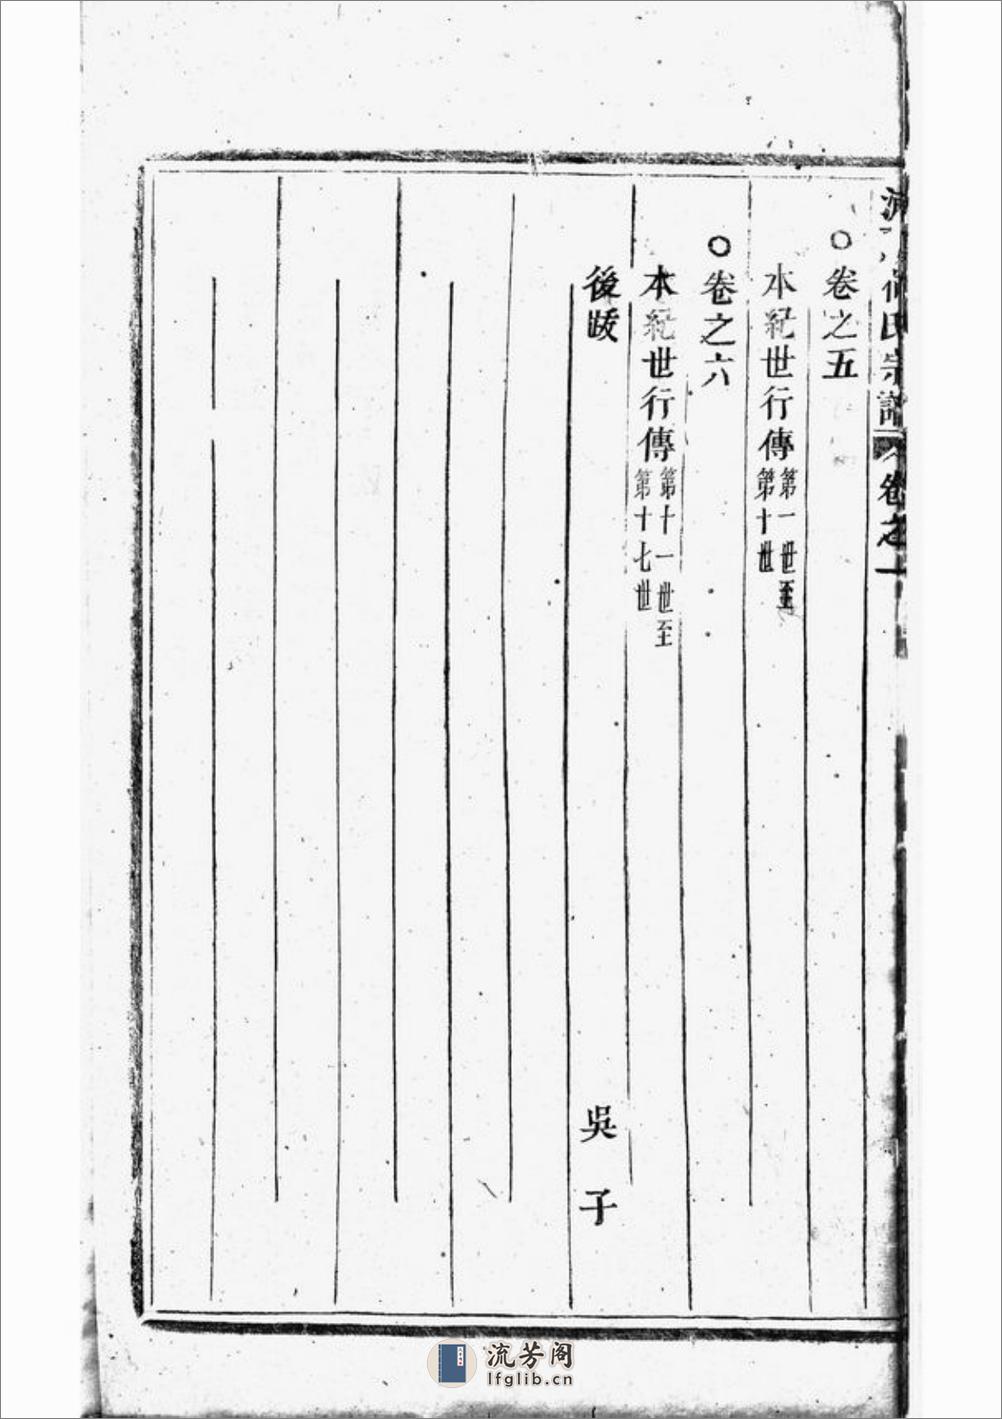 氏宗譜 卷之一
○卷之五
本紀世行傳 第一世至
第十世
○卷之六
本紀世行傳 第十一世至
第十七世
後跋 吳 子
流芳阁
lfglib.cn